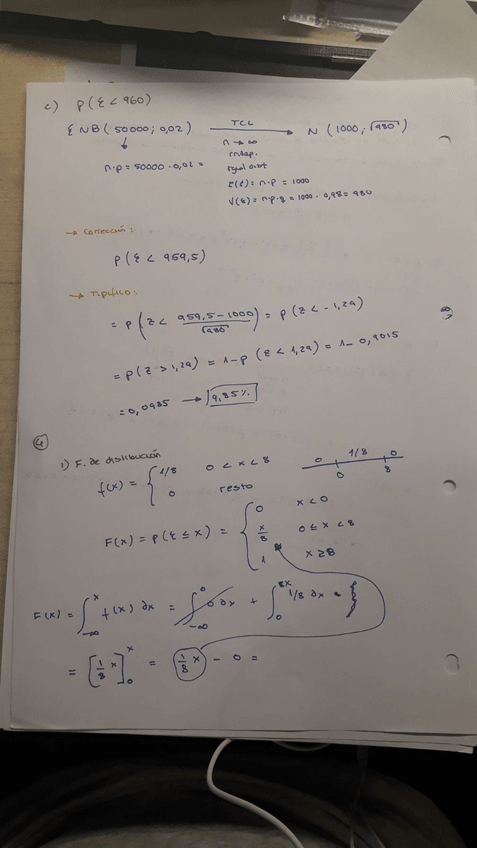 c) P(ξ < 960)
ξ ~ B(50000; 0,02) TCL → N(1000, √980)
n → ∞
indep.
n·p = 50000·0,02 = igual dist
E(ξ) = n·p = 1000
V(ξ) = n·p·q = 1000·0,98 = 980
→ Corrección:
P(ξ < 959,5)
→ Tipifico:
= P(Z < (959,5 - 1000)/√980) = P(Z < -1,29)
= P(Z > 1,29) = 1 - P(Z < 1,29) = 1 - 0,9015
= 0,0985 → 9,85%
4
1) F. de distribución
f(x) = { 1/8 0 < x < 8
0 resto
0 1/8 0
0 8
F(x) = P(ξ ≤ x) = { 0 x < 0
x/8 0 ≤ x < 8
1 x ≥ 8
F(x) = ∫_{-∞}^{x} f(x) dx = ∫_{-∞}^{0} 0 dx + ∫_{0}^{x} 1/8 dx =
= [1/8 x]_{0}^{x} = 1/8 x - 0 =